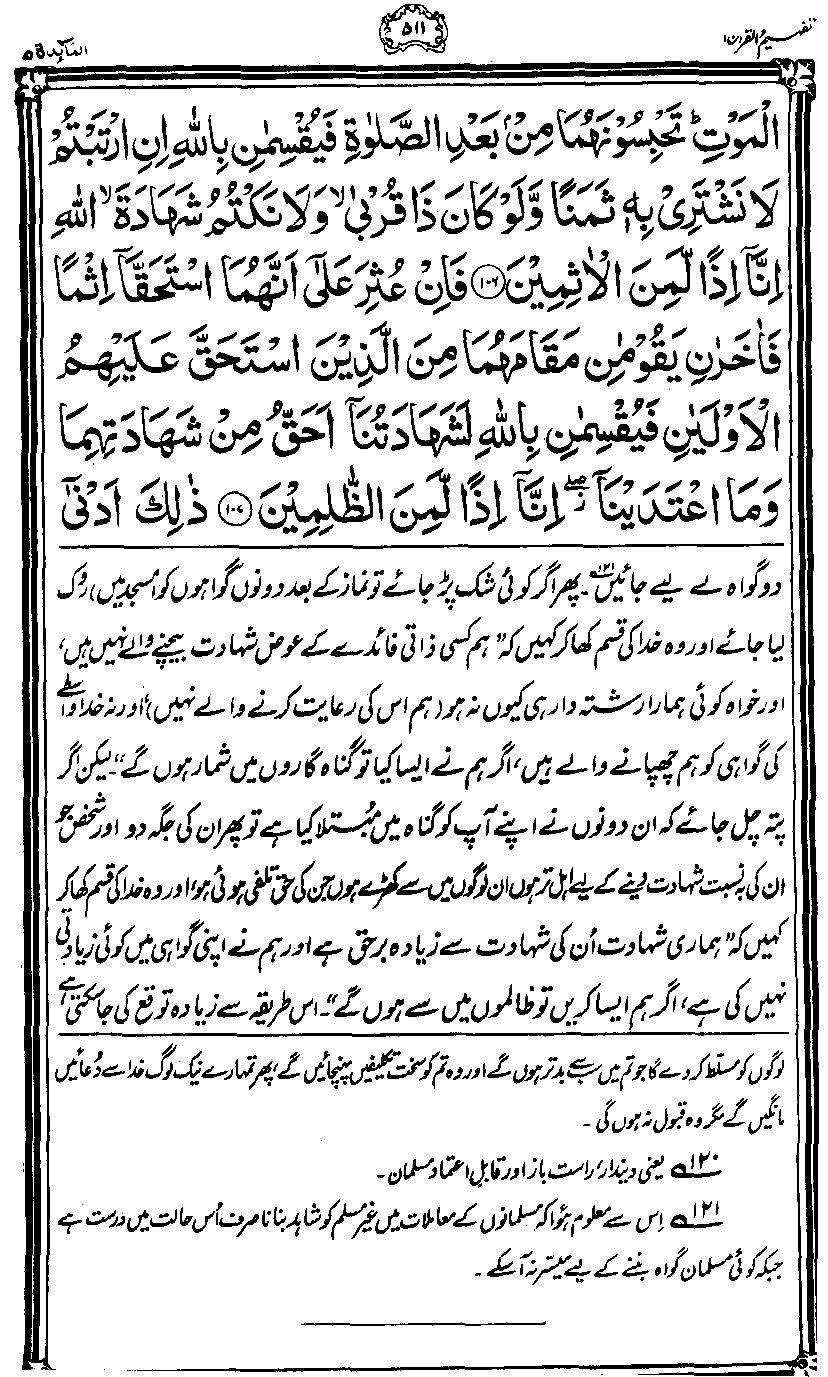 تفہیم القرآن ۱
۵۱۱
المآئدۃ ۵
الْمَوْتِ ؕ تَحْبِسُوْنَهُمَا مِنْۢ بَعْدِ الصَّلٰوةِ فَيُقْسِمٰنِ بِاللّٰهِ اِنِ ارْتَبْتُمْ
لَا نَشْتَرِيْ بِهٖ ثَمَنًا وَّلَوْ كَانَ ذَا قُرْبٰى ۙ وَلَا نَكْتُمُ شَهَادَةَ ۙ اللّٰهِ
اِنَّاۤ اِذًا لَّمِنَ الْاٰثِمِيْنَ ۝۱۰۶ فَاِنْ عُثِرَ عَلٰۤى اَنَّهُمَا اسْتَحَقَّاۤ اِثْمًا
فَاٰخَرٰنِ يَقُوْمٰنِ مَقَامَهُمَا مِنَ الَّذِيْنَ اسْتَحَقَّ عَلَيْهِمُ
الْاَوْلَيٰنِ فَيُقْسِمٰنِ بِاللّٰهِ لَشَهَادَتُنَاۤ اَحَقُّ مِنْ شَهَادَتِهِمَا
وَمَا اعْتَدَيْنَاۤ ۖ اِنَّاۤ اِذًا لَّمِنَ الظّٰلِمِيْنَ ۝۱۰۷ ذٰلِكَ اَدْنٰۤى
دو گواہ لے لیے جائیں۱۲۱۔ پھر اگر کوئی شک پڑ جائے تو نماز کے بعد دونوں گواہوں کو (مسجد میں) روک
لیا جائے اور وہ خدا کی قسم کھا کر کہیں کہ ”ہم کسی ذاتی فائدے کے عوض شہادت بیچنے والے نہیں ہیں،
اور خواہ کوئی ہمارا رشتہ دار ہی کیوں نہ ہو (ہم اس کی رعایت کرنے والے نہیں) اور نہ خدا واسطے
کی گواہی کو ہم چھپانے والے ہیں، اگر ہم نے ایسا کیا تو گناہ گاروں میں شمار ہوں گے“۔ لیکن اگر
پتہ چل جائے کہ ان دونوں نے اپنے آپ کو گناہ میں مُبتلا کیا ہے تو پھر ان کی جگہ دو اور شخص جو
ان کی بہ نسبت شہادت دینے کے لیے اہل تر ہوں ان لوگوں میں سے کھڑے ہوں جن کی حق تلفی ہوئی ہو، اور وہ خدا کی قسم کھا کر
کہیں کہ ”ہماری شہادت اُن کی شہادت سے زیادہ برحق ہے اور ہم نے اپنی گواہی میں کوئی زیادتی
نہیں کی ہے، اگر ہم ایسا کریں تو ظالموں میں سے ہوں گے“۔ اس طریقہ سے زیادہ توقع کی جا سکتی ہے
لوگوں کو مسلط کر دے گا جو تم میں سب سے بدتر ہوں گے اور وہ تم کو سخت تکلیفیں پہنچائیں گے، پھر تمہارے نیک لوگ خدا سے دُعائیں
مانگیں گے مگر وہ قبول نہ ہوں گی۔
۱۲۰ یعنی دیندار، راست باز اور قابلِ اعتماد مسلمان۔
۱۲۱ اِس سے معلوم ہؤا کہ مسلمانوں کے معاملات میں غیر مسلم کو شاہد بنانا صرف اُس حالت میں درست ہے
جبکہ کوئی مسلمان گواہ بننے کے لیے میسر نہ آ سکے۔